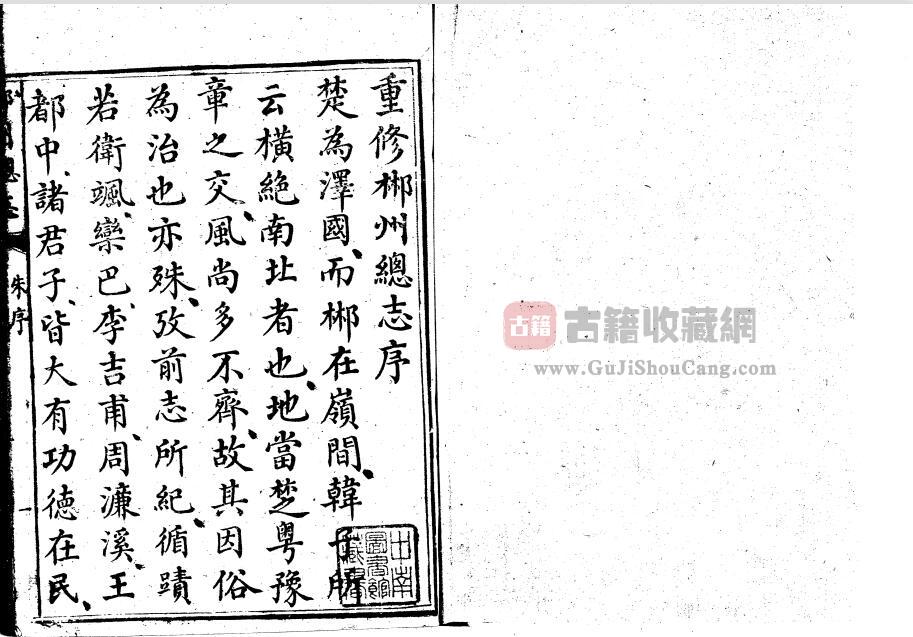 重修郴州總志序
楚為澤國、而郴在嶺間、韓子所
云橫絶南北者也、地當楚粵豫
章之交、風尚多不齊、故其因俗
為治也亦殊、攷前志所紀、循蹟
若衛颯、欒巴、李吉甫、周濂溪、王
都中、諸君子、皆大有功德在民、
朱序
一
圖書館
藏書
古籍
古籍收藏網
www.GuJiShouCang.com